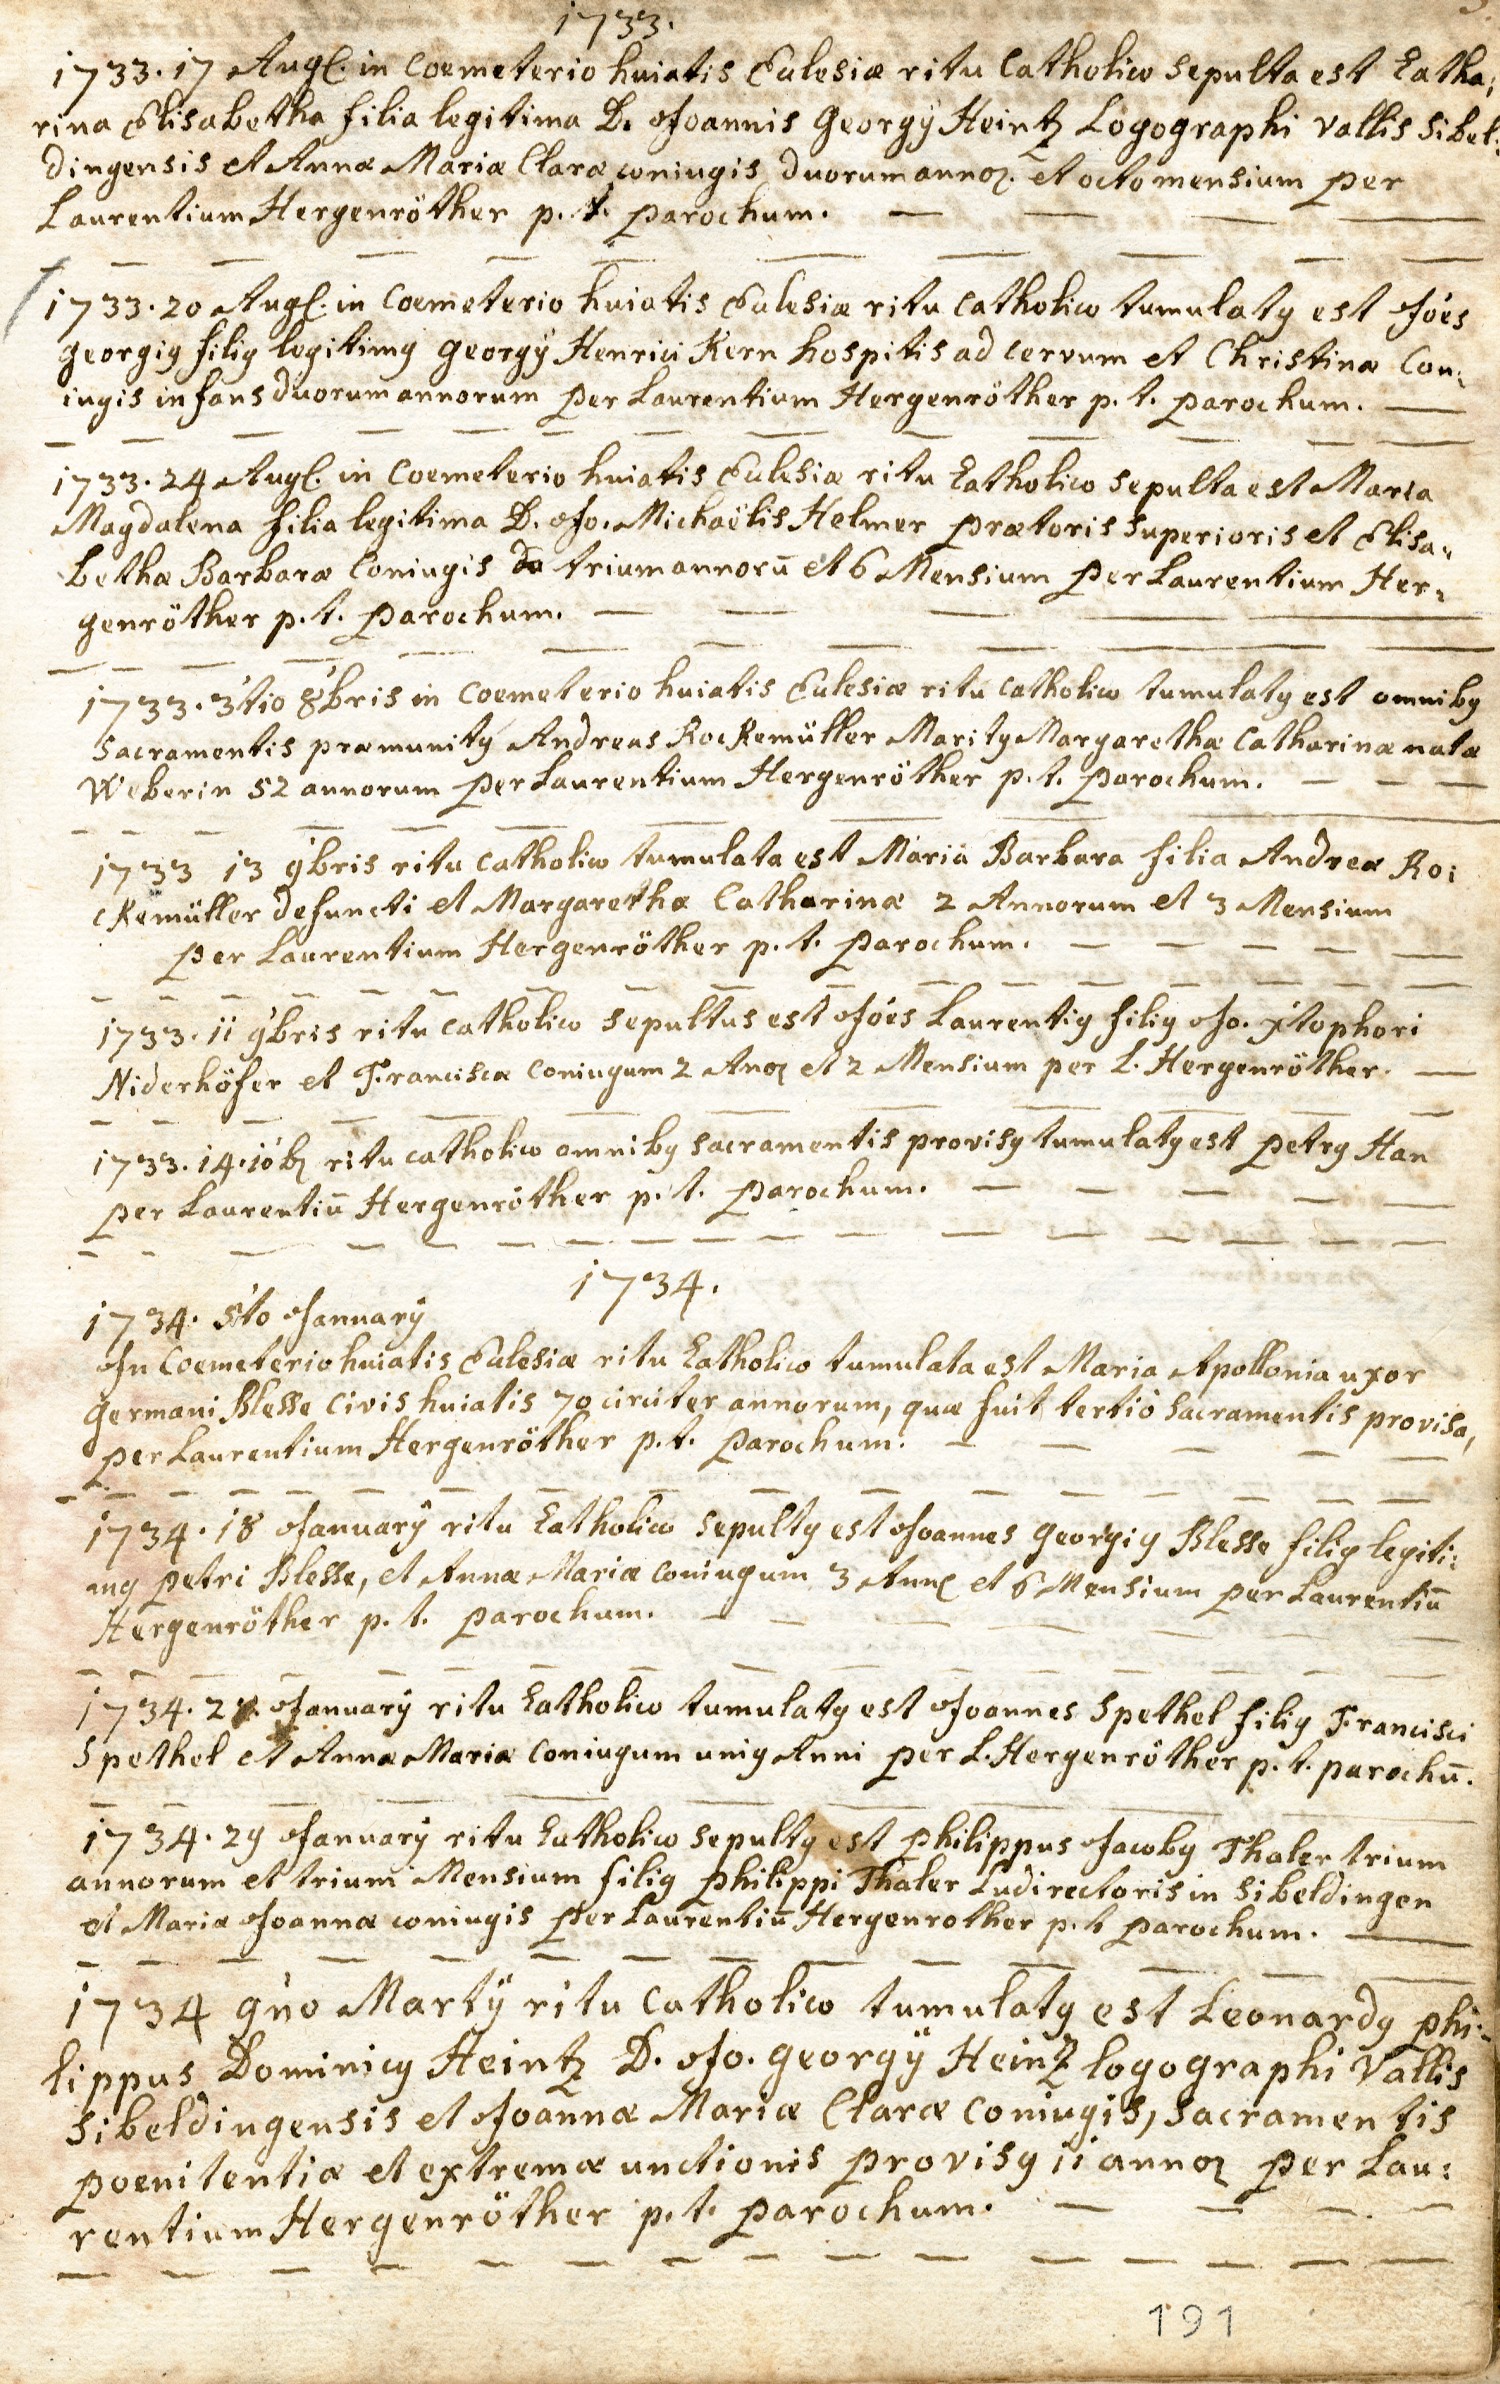 1733.
1733. 17 Augl. in Coemeterio huiatis Eulesiæ ritu Catholico sepulta est Catha:
rina Elisabetha filia legitima D. Joannis Georgÿ Heintz Logographi Vallis Sibel:
dingensis et Annæ Mariæ Claræ coniugis duorum annoꝝ. et octo mensium per
Laurentium Hergenröther p. t. parochum.
1733. 20 Augl. in Coemeterio huiatis Eulesiæ ritu Catholico tumulatꝯ est Joës
Georgiꝯ filiꝯ legitimꝯ Georgÿ Henrici Kern hospitis ad cervum et Christinæ Con:
iugis infans duorum annorum per Laurentium Hergenröther p. t. parochum.
1733. 24 Augl. in Coemeterio huiatis Eulesiæ ritu Catholico sepulta est Maria
Magdalena filia legitima D. Jo. Michaëlis Helmer prætoris superioris et Elisa:
bethæ Barbaræ Coniugis trium annorū et 6 Mensium per Laurentium Her:
genröther p. t. parochum.
1733. 3tio 8bris in Coemeterio huiatis Eulesiæ ritu catholico tumulatꝯ est omnibꝯ
Sacramentis præmunitꝯ Andreas Rockemüller Maritꝯ Margarethæ Catharinæ natæ
Weberin 52 annorum per Laurentium Hergenröther p. t. parochum.
1733 13 9bris ritu catholico tumulata est Maria Barbara filia Andreæ Ro:
ckemüller defuncti et Margarethæ Catharinæ 2 Annorum et 3 Mensium
per Laurentium Hergenröther p. t. parochum.
1733. 11 9bris ritu catholico sepultus est Joës Laurentiꝯ filiꝯ Jo. Xtophori
Niderhöfer et Franciscæ Coniugum 2 Anoꝝ et 2 Mensium per L. Hergenröther.
1733. 14. 10bꝝ ritu catholico omnibꝯ sacramentis provisꝯ tumulatꝯ est petrꝯ Han
per Laurentiū Hergenröther p. t. parochum.
1734.
1734. 5to Januarÿ
In Coemeterio huiatis Eulesiæ ritu Catholico tumulata est Maria Apollonia uxor
Germani Blesse Civis huiatis 70 circiter annorum, quæ fuit tertiò sacramentis provisa,
per Laurentium Hergenröther p. t. parochum.
1734. 18 Januarÿ ritu Catholico sepultꝯ est Joannes Georgiꝯ Blesse filiꝯ legiti:
mꝯ petri Blesse, et Annæ Mariæ Coniugum 3 Annꝝ et 6 Mensium per Laurentiū
Hergenröther p. t. parochum.
1734. Januarÿ ritu Catholico tumulatꝯ est Joannes Spethel filiꝯ Francisci
Spethel et Annæ Mariæ Coniugum uniꝯ Anni per L. Hergenröther p. t. parochū.
1734. 29 Januarÿ ritu Catholico sepultꝯ est Philippus Jacobꝯ Thaler trium
annorum et trium Mensium filiꝯ Philippi Thaler Ludirectoris in Sibeldingen
et Mariæ Joannæ coniugis per Laurentiū Hergenrother p. t parochum.
1734 9no Martÿ ritu Catholico tumulatꝯ est Leonardꝯ Phi:
lippus Dominicꝯ Heintz D. Jo. Georgÿ Heintz logographi Vallis
Sibeldingensis et Joannæ Mariæ Claræ Coniugis, sacramentis
poenitentiæ et extremæ unctionis provisꝯ 11 annoꝝ per Lau:
rentium Hergenröther p. t. parochum.
191